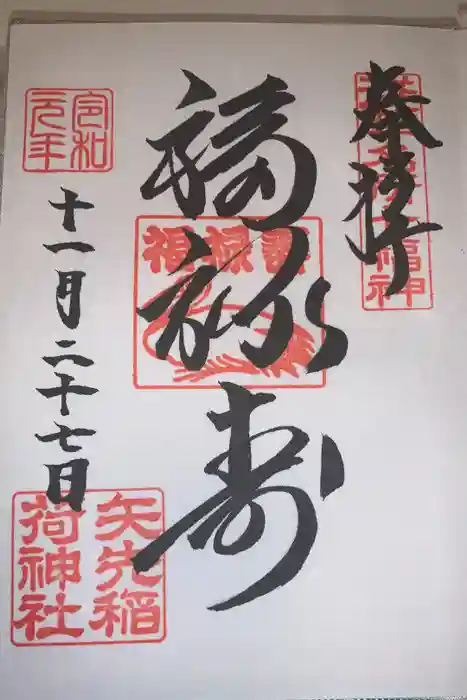 奉拝
福禄寿
福禄壽
令和
元年
十一月二十七日
矢先稲
荷神社